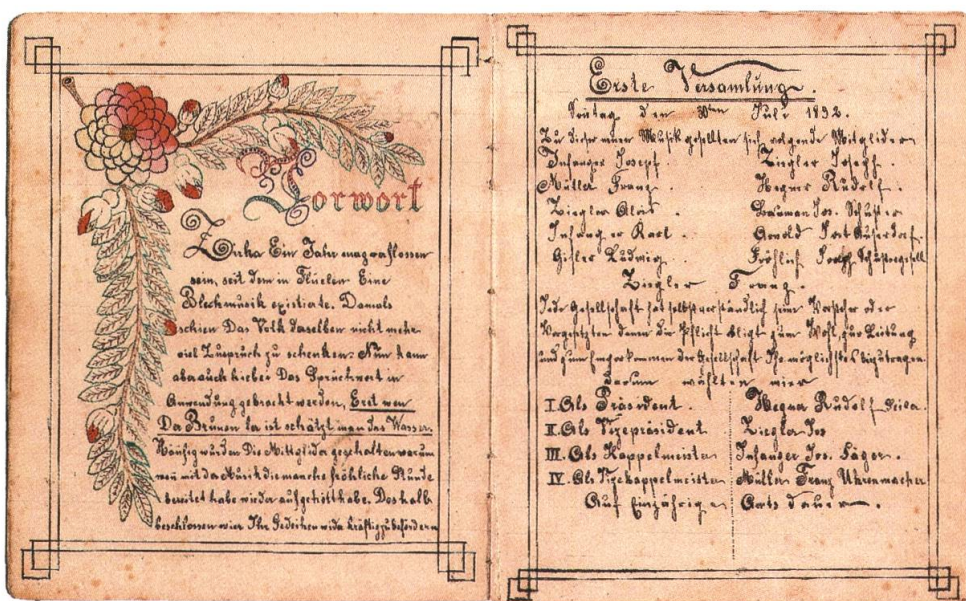 Vorwort
Zirka Ein Jahr mag verflossen
sein, seit dem in Flüelen Eine
Blechmusik existierte. Damals
schien Das Volk daselben nicht mehr
viel Zuspruch zu schenken: Nun kann
aber auch hiebei Das Spruchwort in
Anwendung gebracht werden, Erst wen
Da Brunen ler ist schätzt man das Wasser.
Häufig wurden Die Mittglider gehalten warum
man mit da Musik die manche fröhliche Stunde
bereitet habe wieder aufgehört habe. Deshalb
beschlossen wier Ihr Gedeihen wider kräftig zu befördern
Erste Versamlung.
Sontag den 30ten Juli 1892.
Zu dieser neuen Musik gesellten sich folgende Mitglider
Infanger Josepf. Ziegler Joseph.
Müller Franz. Hegner Rudolf.
Ziegler Alois. Bauman Jos. Schuster
Infanger Karl. Arnold
Gisler Ludwig. Fröhlich Joseph Schustergesell
Ziegler Franz.
Jede Gesellschaft hat selbstverständlich seine Vorsteher oder
Vorgesetzten denen die Pflicht obligt zum Wohl zur Leitung
und zum der Gesellschaft Ihr möglichstes beizutragen
darum wählten wier
I. Als Präsident. Hegner Rudolf
II. Als Vizepräsident. Ziegler Jos
III. Als Kappelmeister Infanger Jos. Säger.
IV. Als Vizekappelmeister Müller Franz Uhrenmacher
Auf Einjährige Amts dauer.